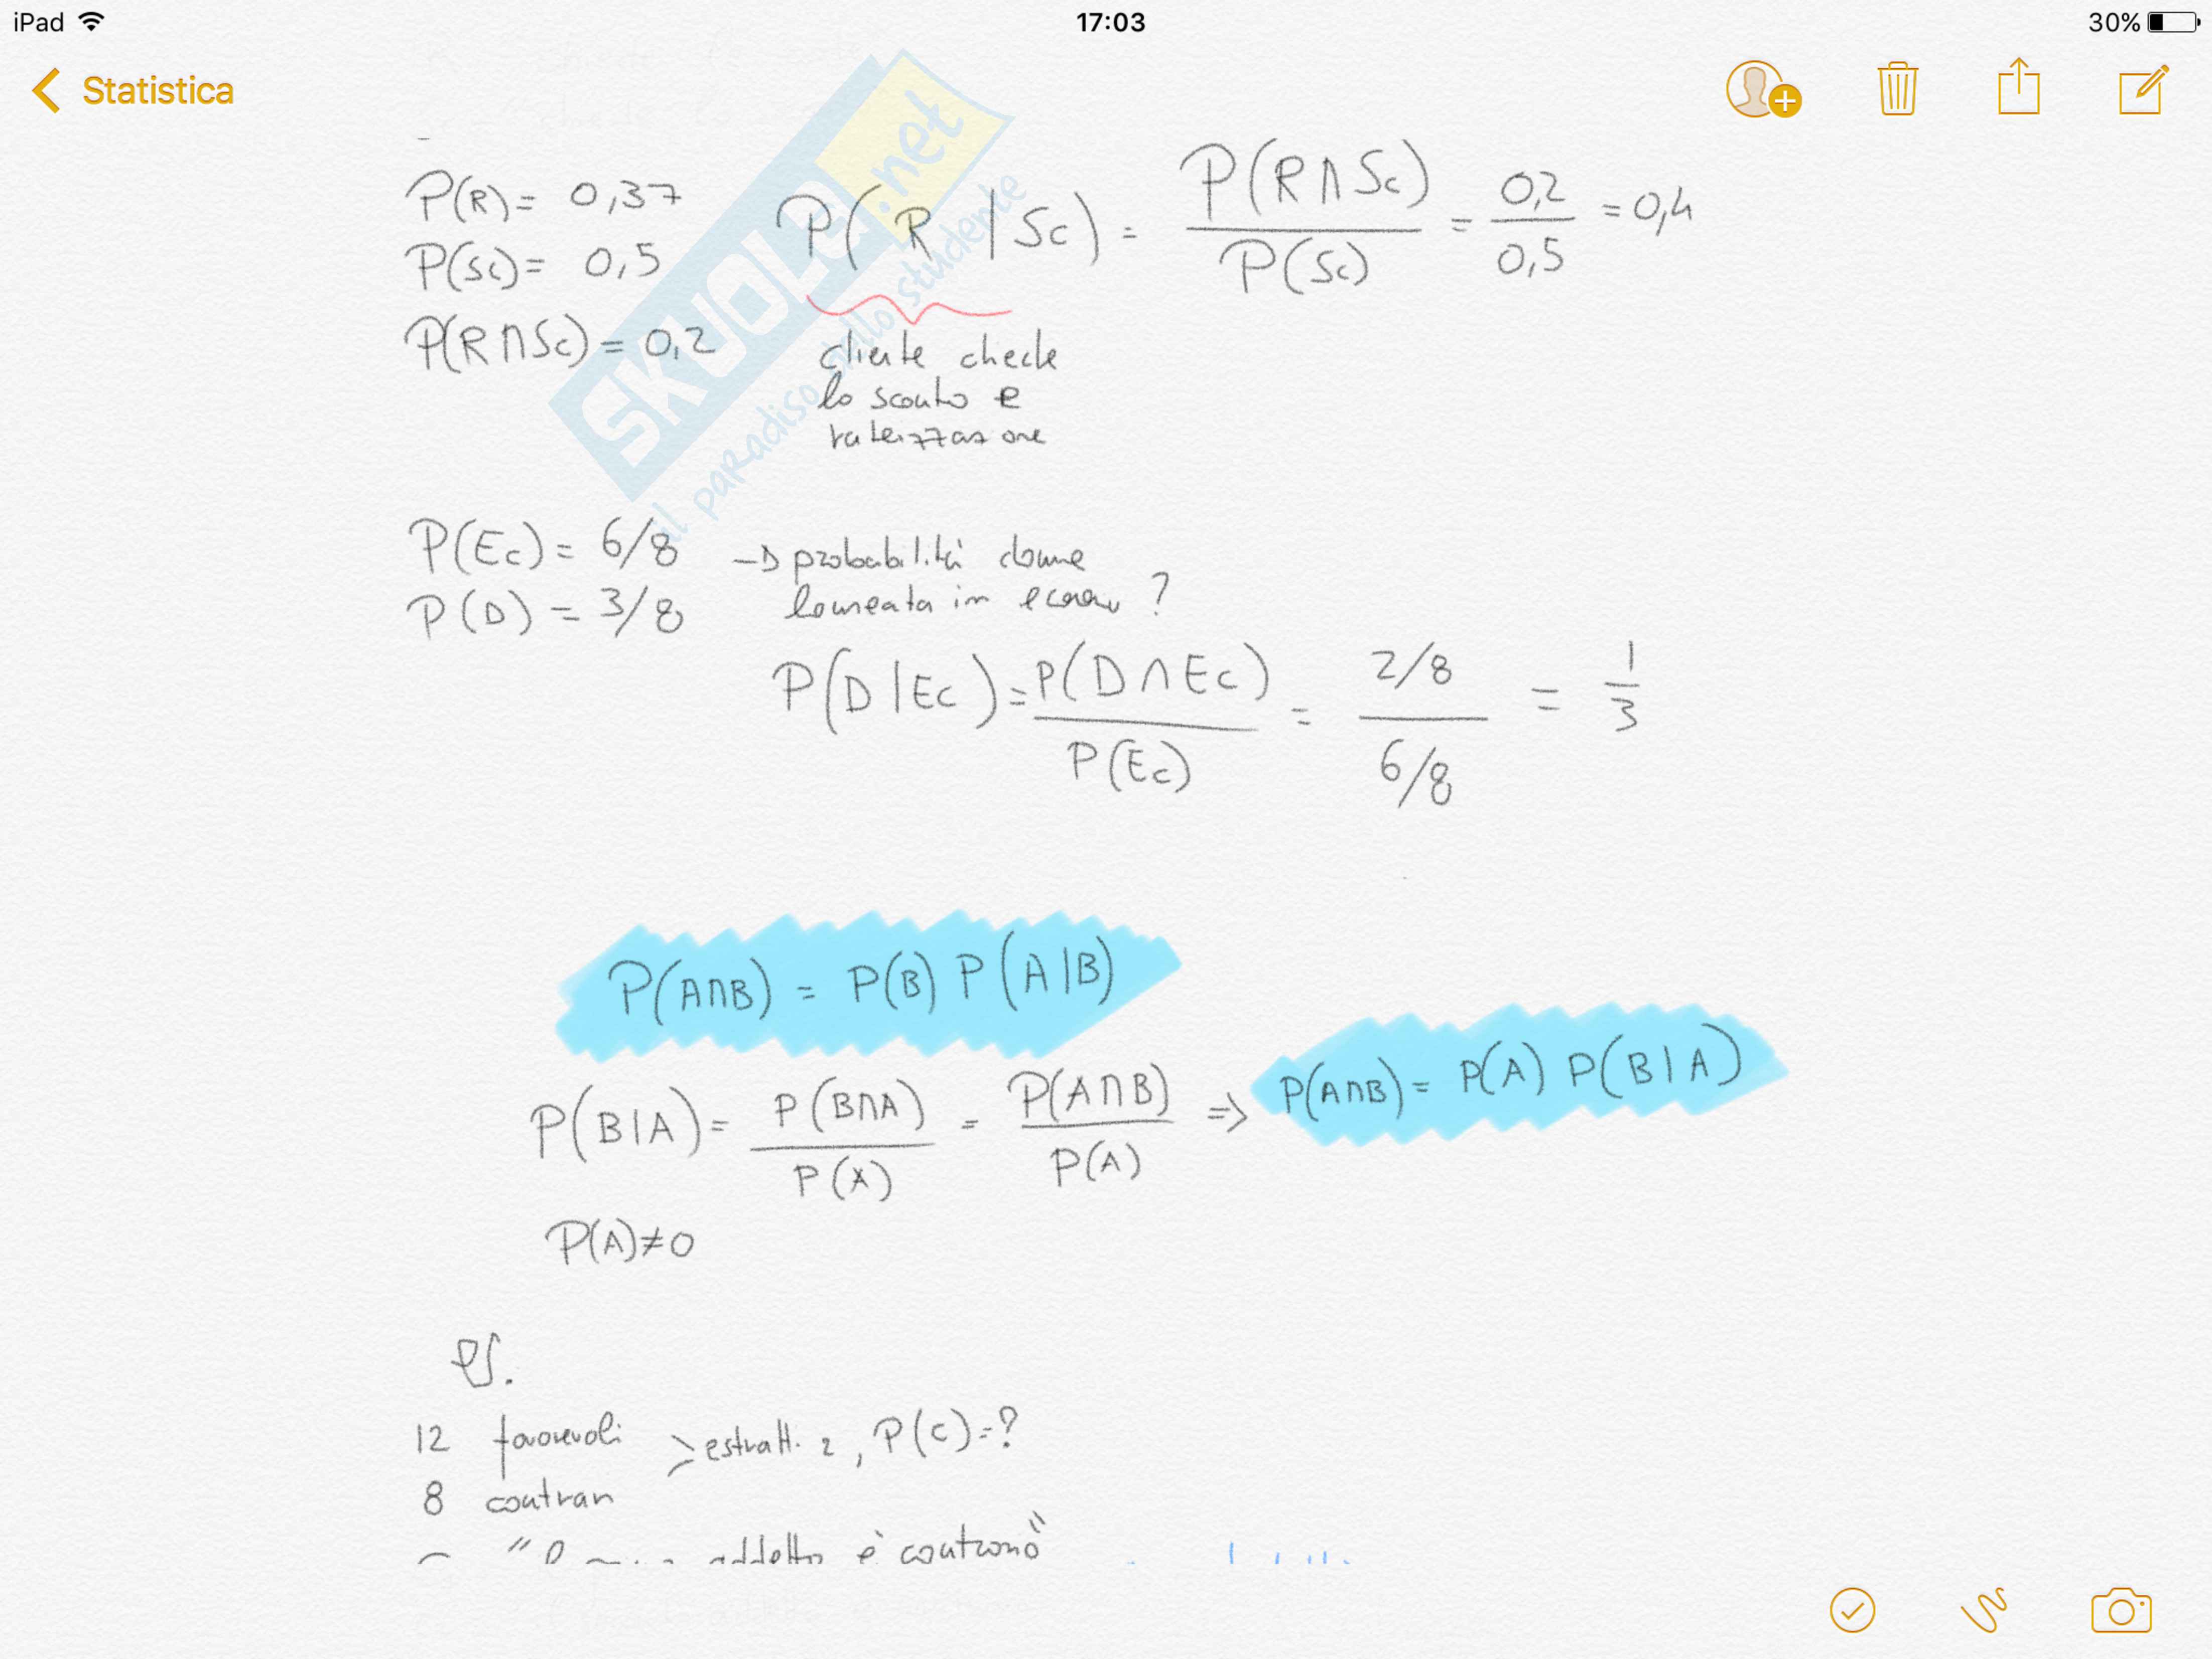 iPad 17:03 30%
Statistica
P(R)= 0,37
P(Sc)= 0,5
P(R∩Sc)= 0,2
P(R|Sc) = P(R∩Sc)/P(Sc) = 0,2/0,5 = 0,4
cliente chiede
lo sconto e
rateizzazione
SKUOLA.net
il paradiso dello studente
P(Ec)= 6/8 → probabilità donna
P(D) = 3/8 laureata in ?
P(D|Ec) = P(D∩Ec)/P(Ec) = 2/8 / 6/8 = 1/3
P(A∩B) = P(B) P(A|B)
P(B|A) = P(B∩A)/P(A) = P(A∩B)/P(A) => P(A∩B) = P(A) P(B|A)
P(A)≠0
es.
12 favorevoli > estratti 2, P(C)=?
8 contrari
addetto è contrario"